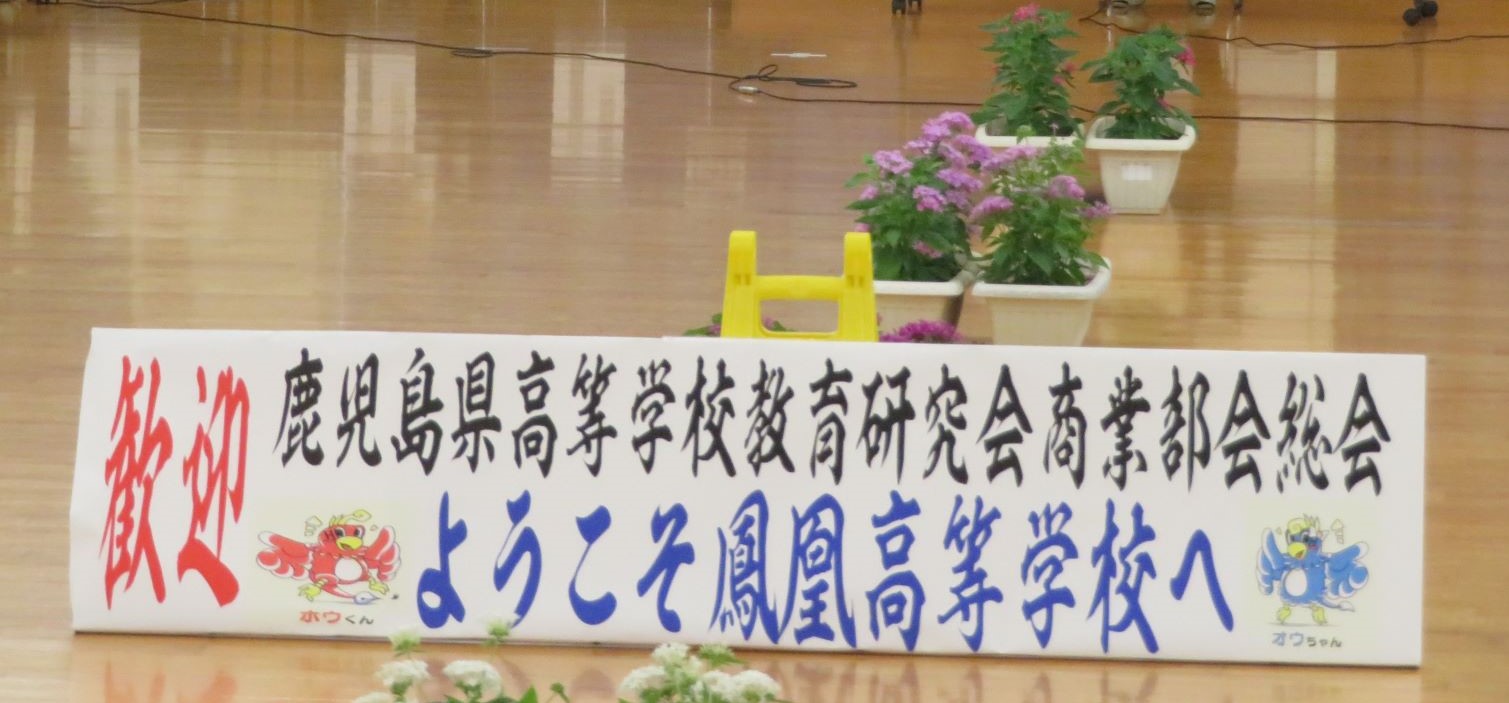 歓迎
鹿児島県高等学校教育研究会商業部会総会
ようこそ鳳凰高等学校へ
ホウくん
オウちゃん